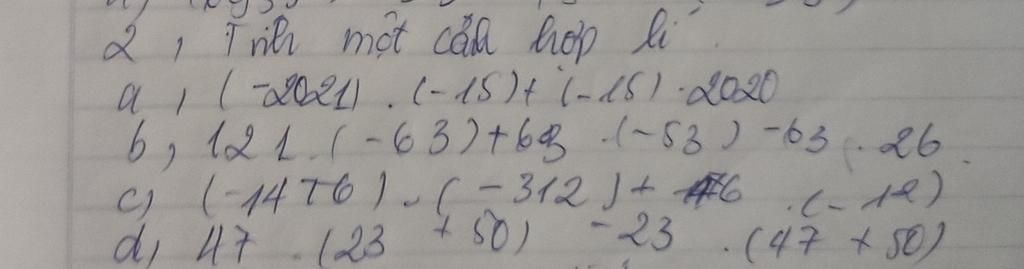 2, Tính một cách hợp lí
a, (-2021) . (-15) + (-15) . 2020
b, 121 . (-63) + 63 . (-53) - 63 . 26
c) (-1476) . (-312) + 6 . (-12)
d, 47 . (23 + 50) - 23 . (47 + 50)